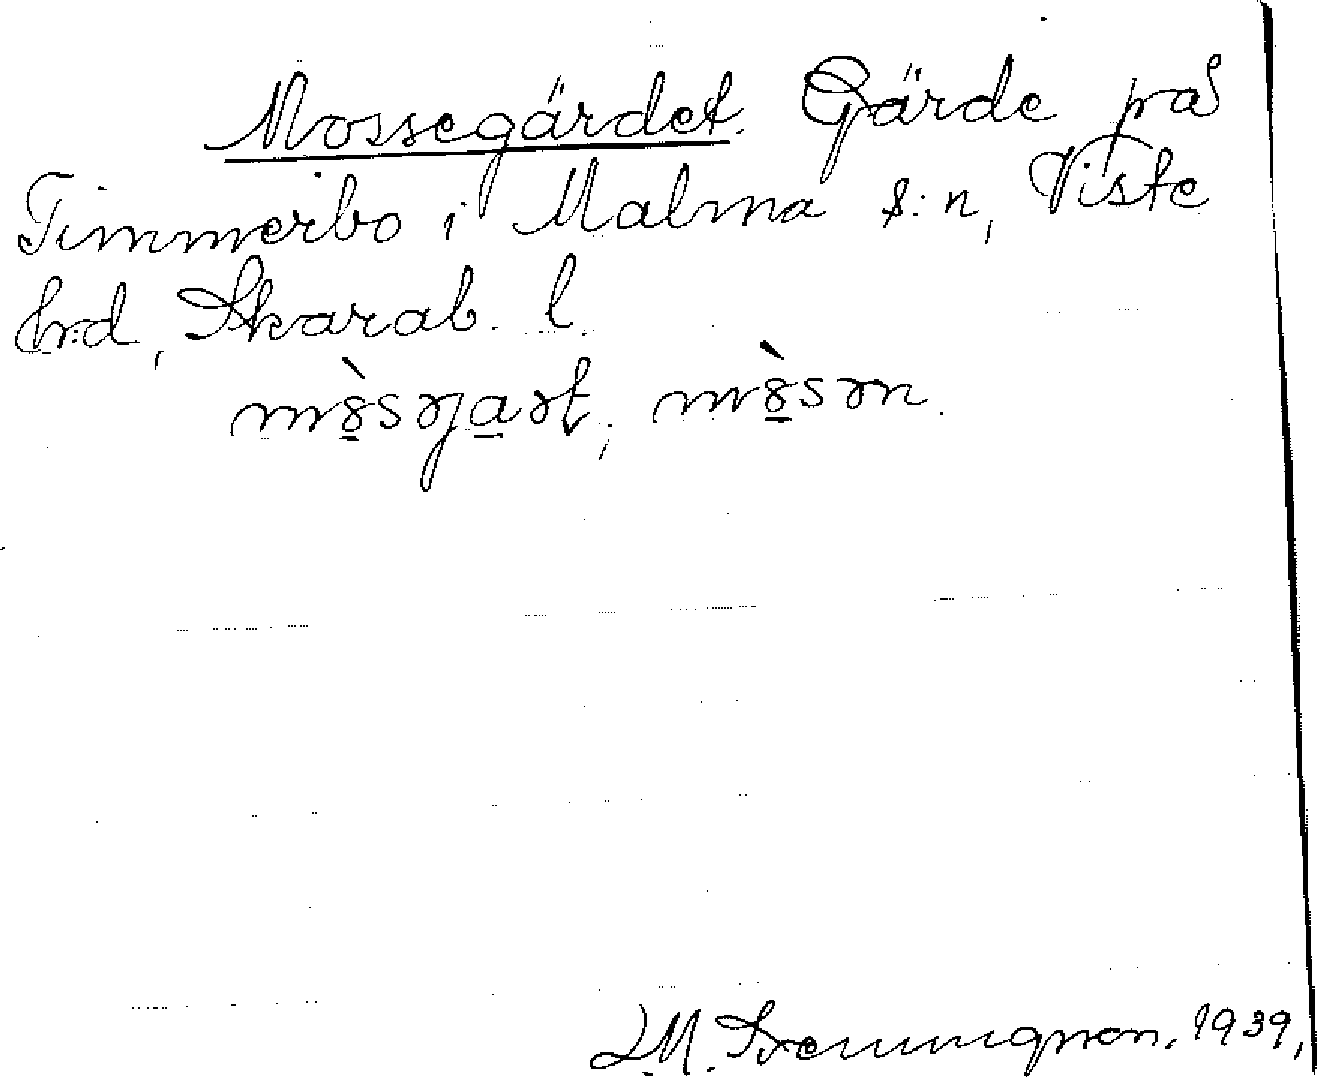 Mossegärdet. Gärde på
Timmerbo i Malma s:n, Viste
hrd, Skarab. l.
mò̱sɘja̱ɘt, mò̱sɘn.
L.M. Svenungsson. 1939,